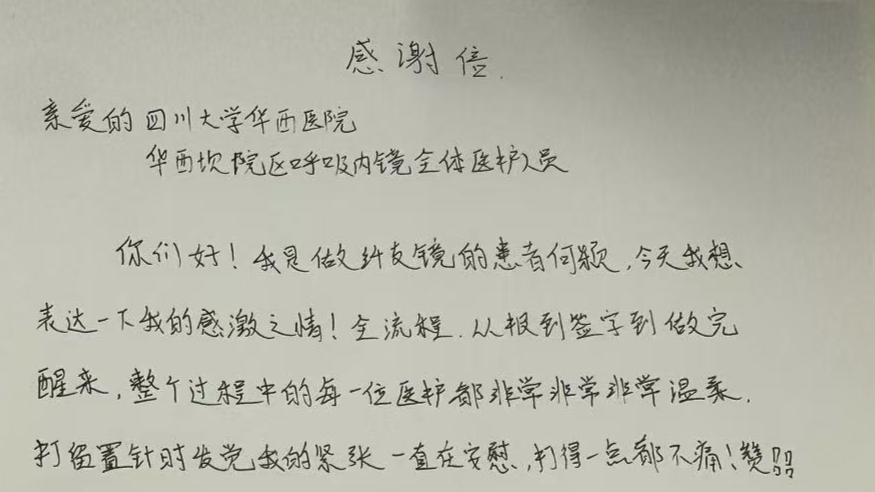 感谢信.
亲爱的四川大学华西医院
华西坝院区呼吸内镜全体医护人员
你们好！我是做纤支镜的患者何颖,今天我想
表达一下我的感激之情！全流程.从报到签字到做完
醒来,整个过程中的每一位医护都非常非常非常温柔.
打留置针时发觉我的紧张一直在安慰,打得一点都不痛！赞